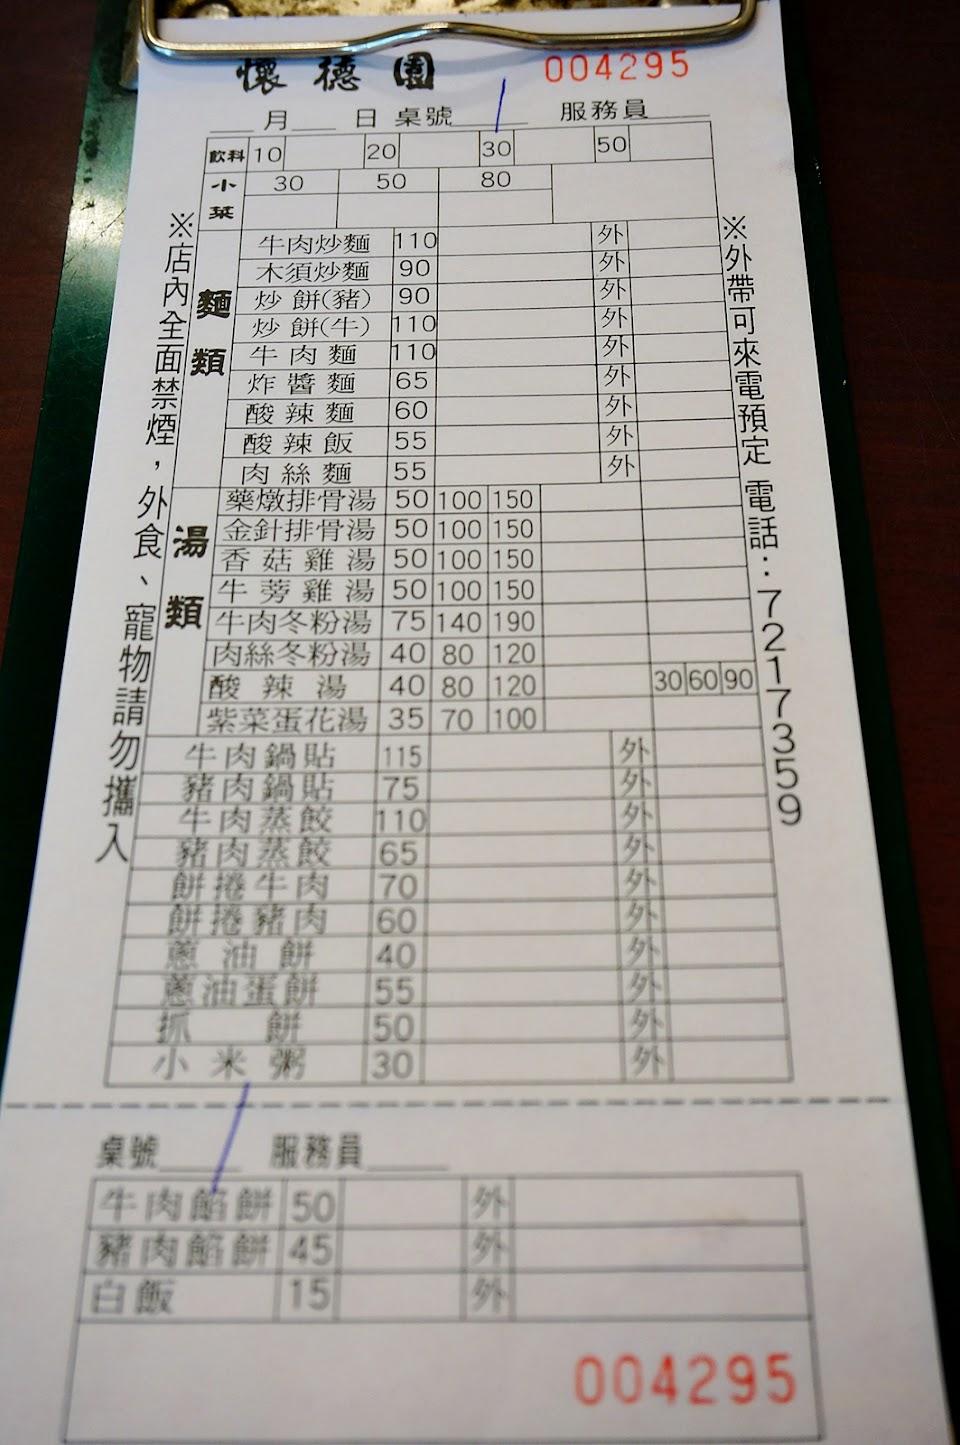 懷德園 004295
月 日 桌號 服務員
飲料 10 20 30 50
小菜 30 50 80
※店內全面禁煙，外食、寵物請勿攜入
※外帶可來電預定 電話：7217359
麵類
牛肉炒麵 110 外
木須炒麵 90 外
炒餅(豬) 90 外
炒餅(牛) 110 外
牛肉麵 110 外
炸醬麵 65 外
酸辣麵 60 外
酸辣飯 55 外
肉絲麵 55 外
湯類
藥燉排骨湯 50 100 150
金針排骨湯 50 100 150
香菇雞湯 50 100 150
牛蒡雞湯 50 100 150
牛肉冬粉湯 75 140 190
肉絲冬粉湯 40 80 120
酸辣湯 40 80 120 30 60 90
紫菜蛋花湯 35 70 100
牛肉鍋貼 115 外
豬肉鍋貼 75 外
牛肉蒸餃 110 外
豬肉蒸餃 65 外
餅捲牛肉 70 外
餅捲豬肉 60 外
蔥油餅 40 外
蔥油蛋餅 55 外
抓餅 50 外
小米粥 30 外
桌號 服務員
牛肉餡餅 50 外
豬肉餡餅 45 外
白飯 15 外
004295